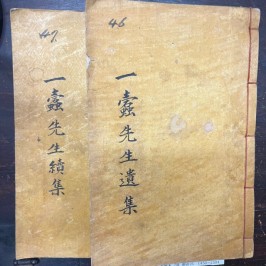 46
一蠹先生遺集
47
一蠹先生續集